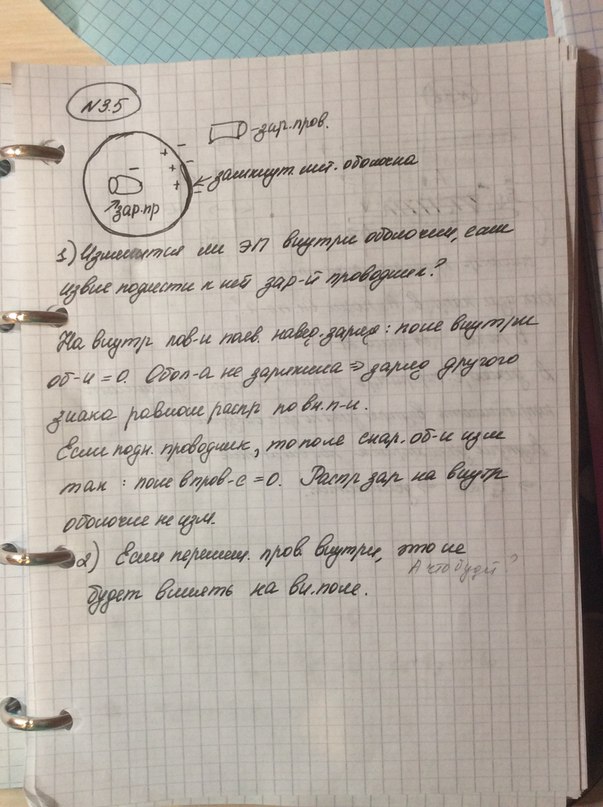 N3.5
-зар.пров.
замкнут. мет. оболочка
зар.пр
1) Изменится ли ЭП внутри оболочки, если
извне поднести к ней зар-й проводник?
На внутр пов-и появ. навед. заряд : поле внутри
об-и = 0. Обол-а не заряжена => заряд другого
знака равном распр по вн. п-и.
Если подн. проводник, то поле снар. об-и изм
так : поле в пров-е = 0. Распр зар на внутр
оболочке не изм.
2) Если перемещ. пров. внутри, это не
А что будет?
будет влиять на вн. поле.